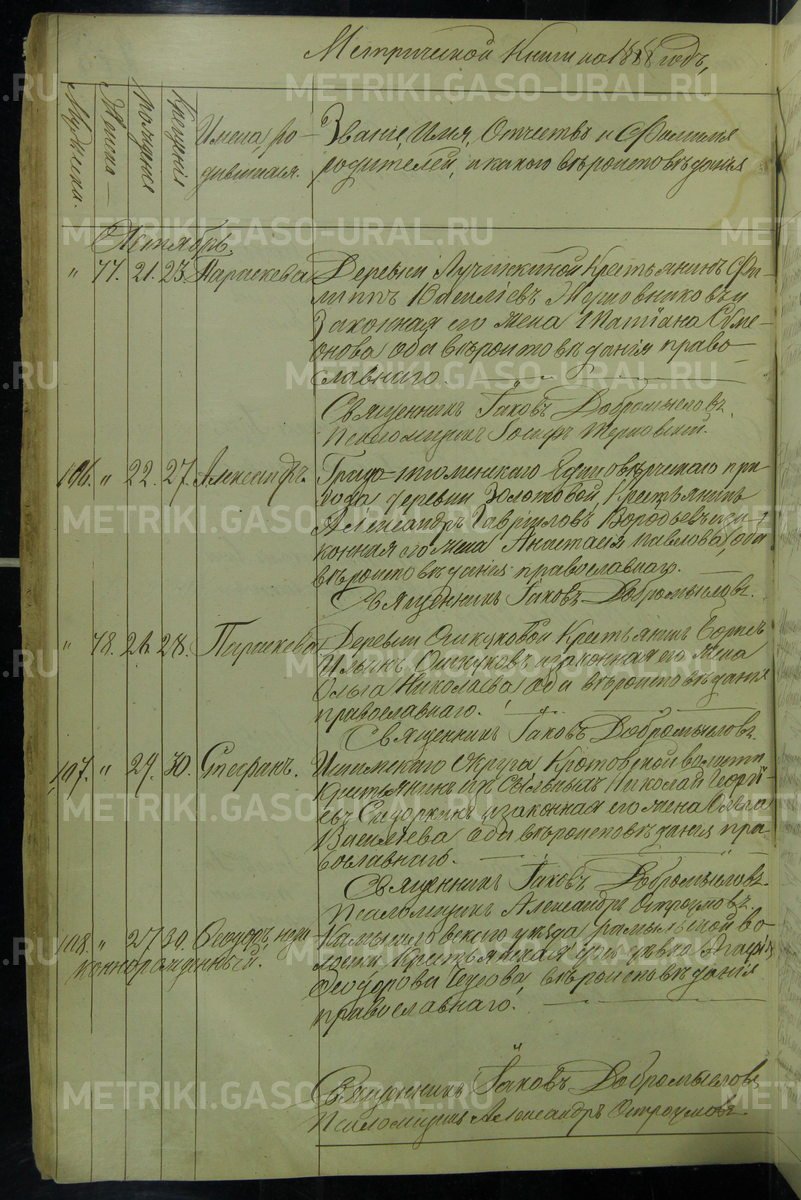 Метрической Книги на 1888 годъ,
Мужска.
Женска
Рожденія
Крещенія
Имена ро-
дившихся.
Званіе, Имя, Отчество и Фамилія
родителей, и какого вѣроисповѣданія
Октябрь.
" 77. 21. 23. Параскева
Деревни Крестьянинъ Фи-
липпъ Васильевъ и
законная его жена Татіана Симе-
онова оба вѣроисповѣданія право-
славнаго.
Священникъ Іаковъ Добромысловъ.
Псаломщикъ Іосифъ
106. " 22. 27. Александръ.
Градо-тюменскаго Единовѣрческаго при-
хода деревни Золотовой Крестьянинъ
Александръ Гавріиловъ Воробьевъ и за-
конная его жена Анастасія Павлова, оба
вѣроисповѣданія православнаго.
Священникъ Іаковъ Добромысловъ.
" 78. 28. Параскева
Деревни Ошкуковой Крестьянинъ
Ильинъ Ошкуковъ и законная его жена
Ольга Николаева оба вѣроисповѣданія
православнаго.
Священникъ Іаковъ Добромысловъ.
107. " 29. 30. Стефанъ.
Ишимскаго Округа Кротовской волости
Крестьянинъ изъ Николай Георгі-
евъ Сидоркинъ и законная его жена Ольга
Васильева оба вѣроисповѣданія пра-
вославнаго.
Священникъ Іаковъ Добромысловъ.
Псаломщикъ Александръ Остроумовъ.
108. " 27 30. Ѳеодоръ неза-
коннорожденный.
Камышловскаго уѣзда во-
лости, Крестьянская дѣвка
Ѳеодорова вѣроисповѣданія
православнаго.
Священникъ Іаковъ Добромысловъ
Псаломщикъ Александръ Остроумовъ
METRIKI.GASO-URAL.RU